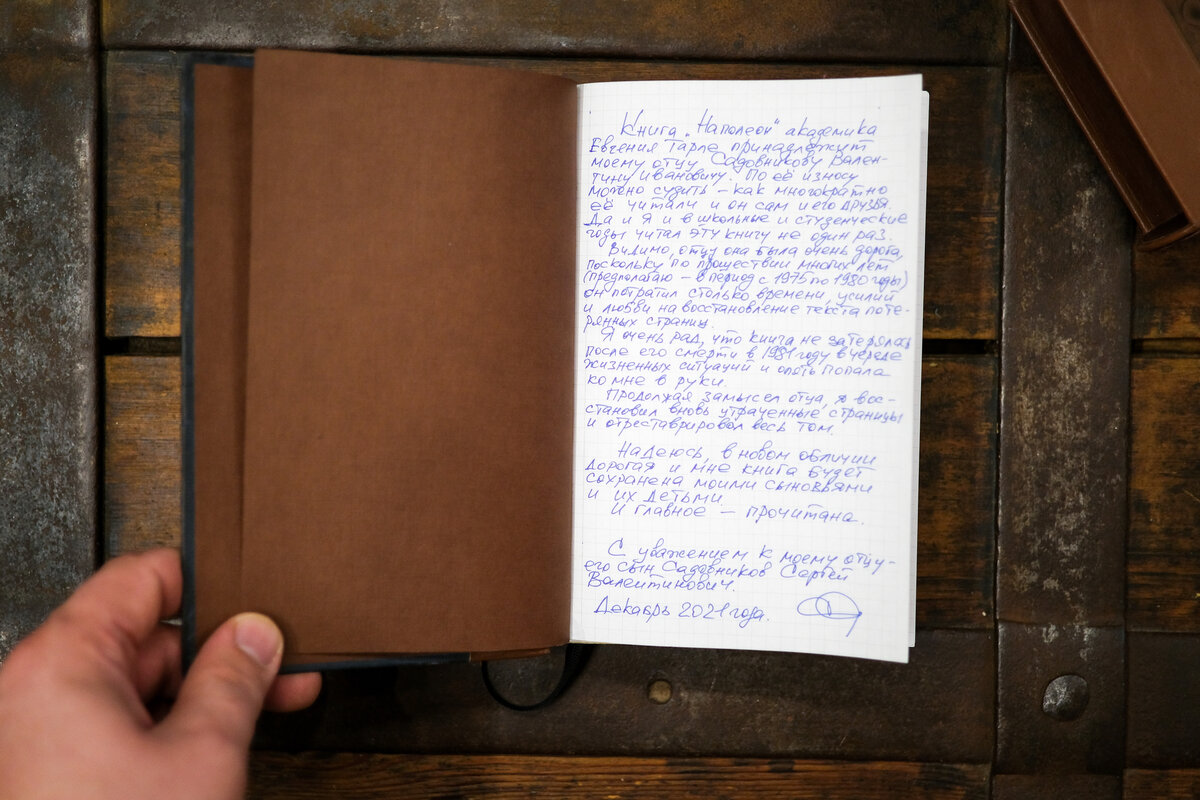 Книга „Наполеон" академика
Евгения Тарле принадлежит
моему отцу Садовникову Вален-
тину Ивановичу. По её износу
можно судить – как многократно
её читали и он сам и его друзья.
Да и я и в школьные и студенческие
годы читал эту книгу не один раз.
Видимо, отцу она была очень дорога,
поскольку по прошествии многих лет
(предполагаю – в период с 1975 по 1980 годы)
он потратил столько времени, усилий
и любви на восстановление текста поте-
рянных страниц.
Я очень рад, что книга не затерялась
после его смерти в 1981 году в череде
жизненных ситуаций и опять попала
ко мне в руки.
Продолжая замысел отца, я вос-
становил вновь утраченные страницы
и отреставрировал весь том.
Надеюсь, в новом обличии
дорогая и мне книга будет
сохранена моими сыновьями
и их детьми.
И главное – прочитана.
С уважением к моему отцу –
его сын Садовников Сергей
Валентинович.
Декабрь 2021 года.